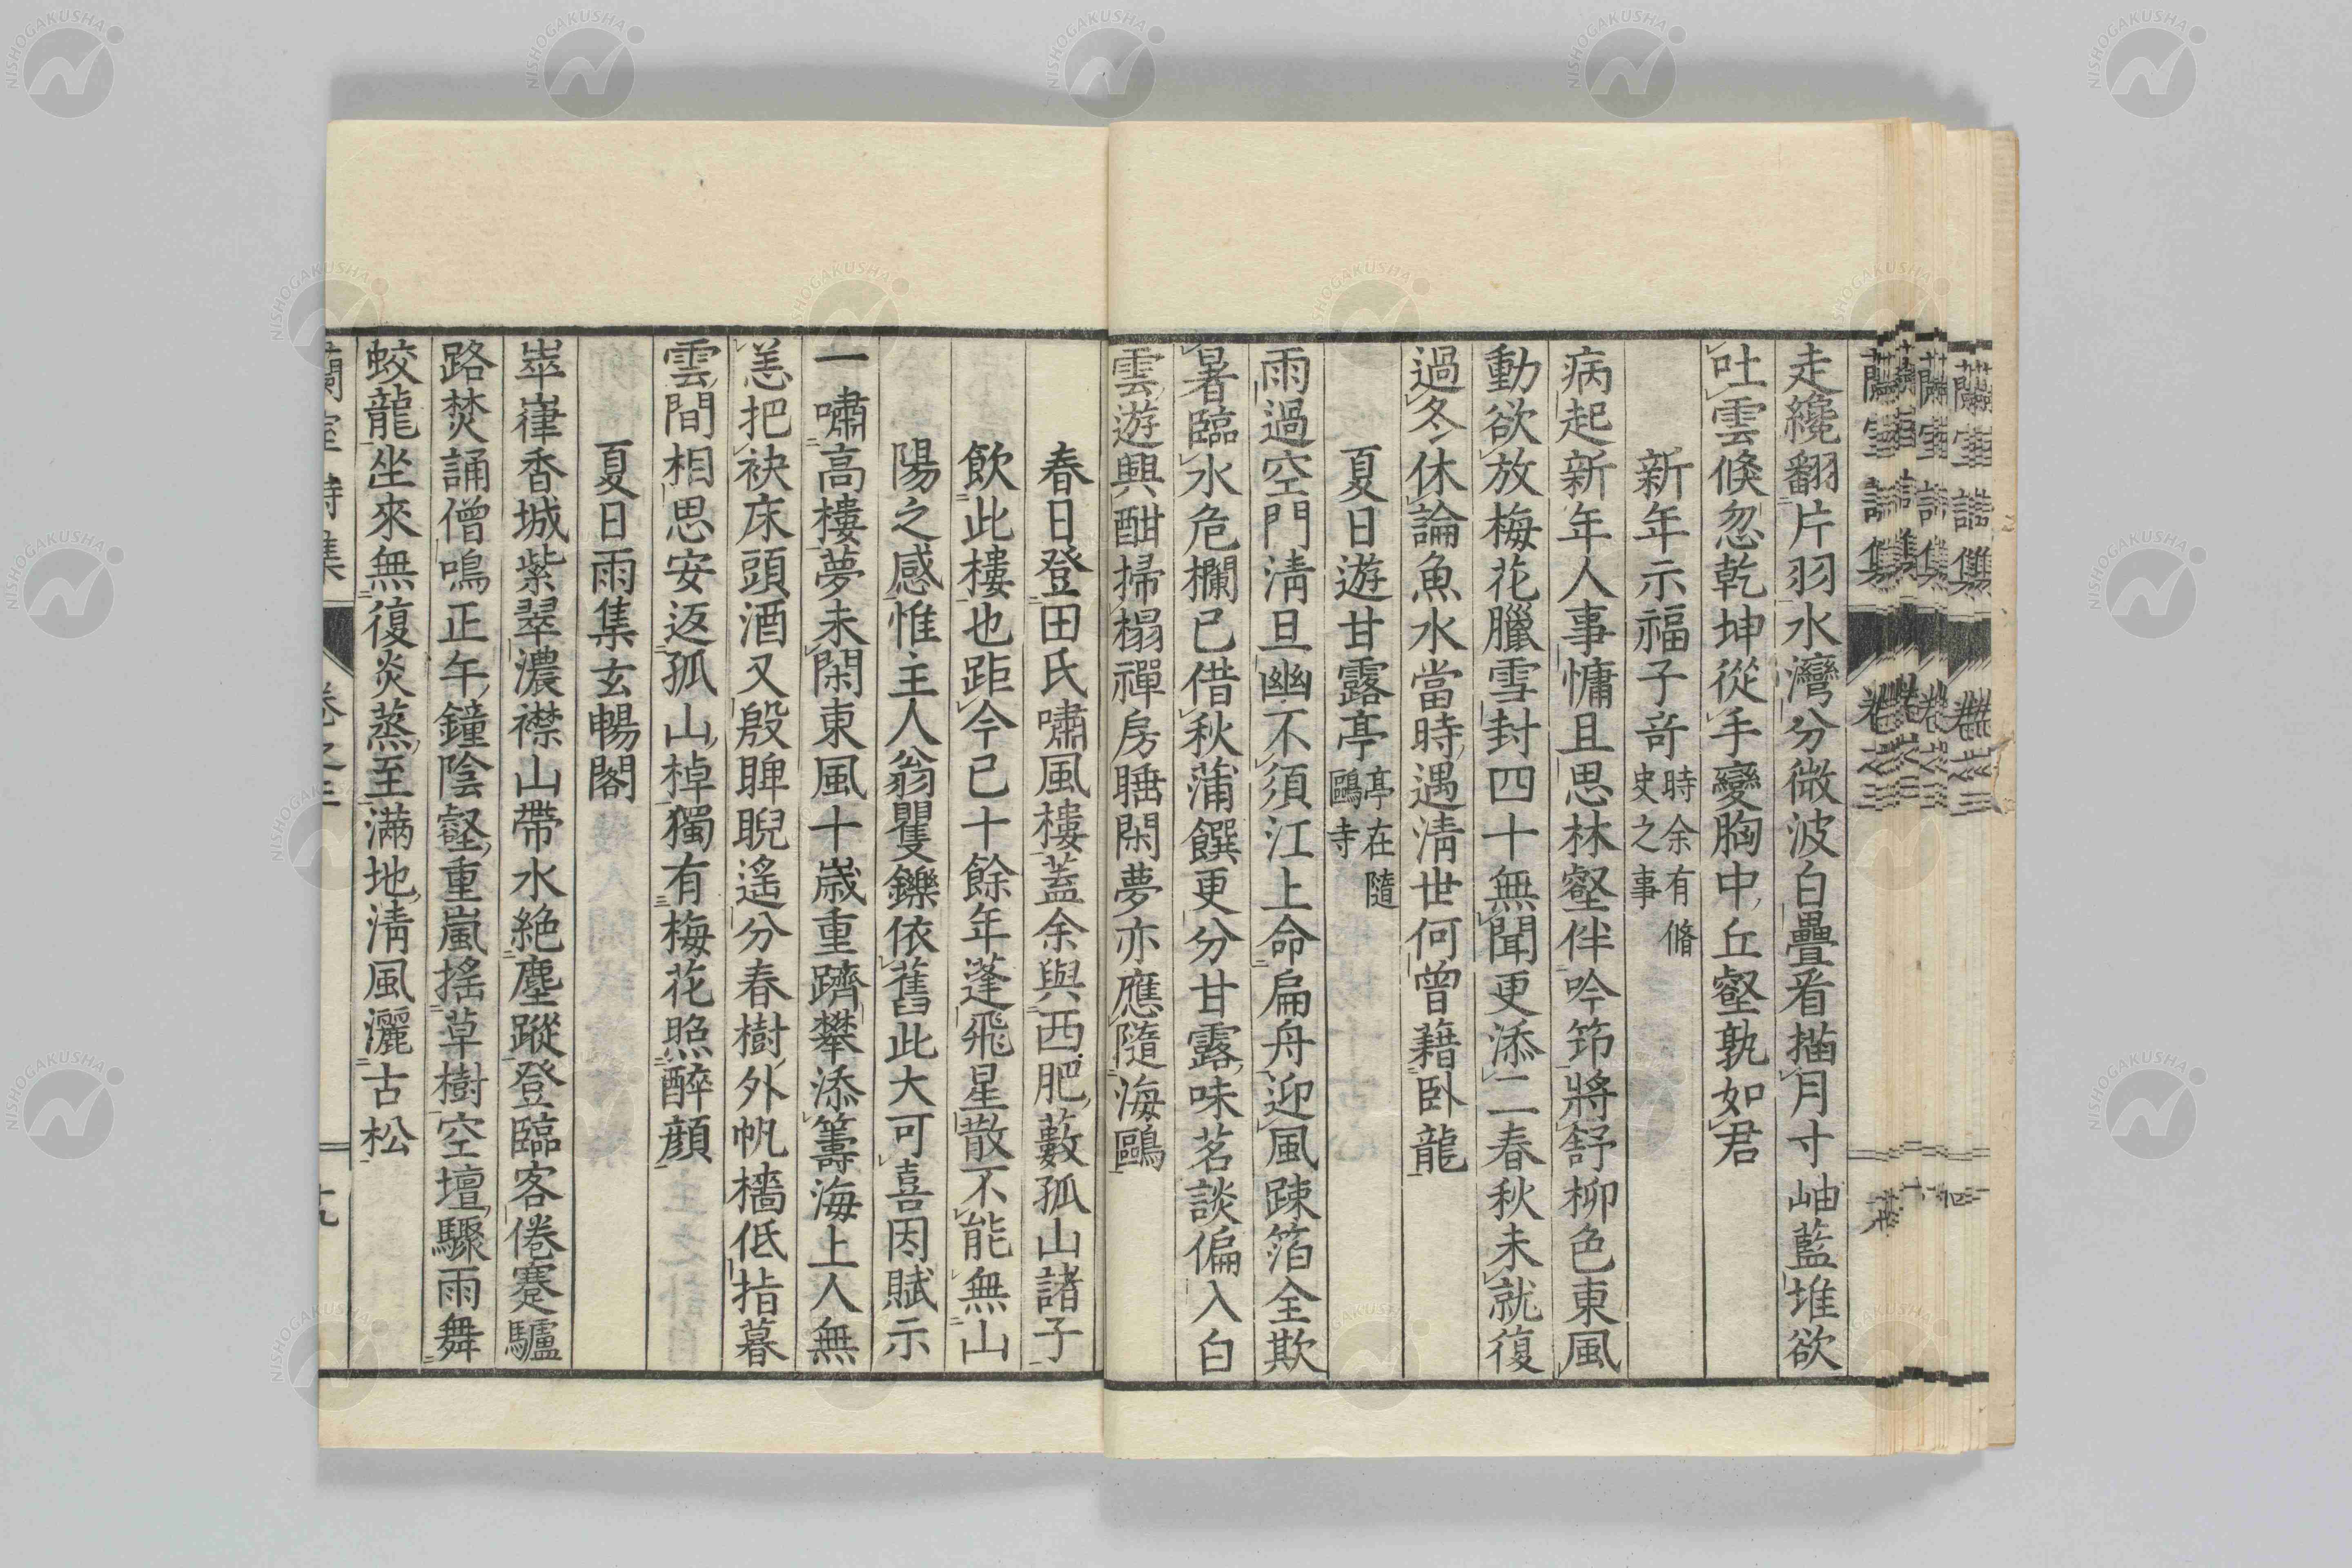 走纔翻片羽水灣分微波白疊看描月寸岫藍堆欲
吐雲倏忽乾坤從手變胸中丘壑孰如君
新年示福子竒時余有脩史之事
病起新年人事慵且思林壑伴吟筇將舒柳色東風
動欲放梅花臘雪封四十無聞更添二春秋未就復
過冬休論魚水當時遇淸世何曾藉臥龍
夏日遊甘露亭亭在隨鷗寺
雨過空門淸且幽不須江上命扁舟迎風踈箔全欺
暑臨水危欄已借秋蒲饌更分甘露味茗談偏入白
雲遊興酣掃榻禪房睡閑夢亦應隨海鷗
春日登田氏嘯風樓蓋余與西肥藪孤山諸子
飲此樓也距今已十餘年蓬飛星散不能無山
陽之感惟主人翁矍鑠依舊此大可喜因賦示
一嘯高樓夢未閑東風十歲重躋攀添籌海上人無
恙把袂床頭酒又殷睥睨遙分春樹外帆檣低指暮
雲間相思安返孤山棹獨有梅花照醉顏
夏日雨集玄暢閣
崒嵂香城紫翠濃襟山帶水絶塵蹤登臨客倦蹇驢
路焚誦僧鳴正午鐘陰壑重嵐搖草樹空壇驟雨舞
蛟龍坐來無復炎蒸至滿地淸風灑古松
蘭室詩集
卷之三
十九
蘭室詩集 卷之三
NISHOGAKUSHA